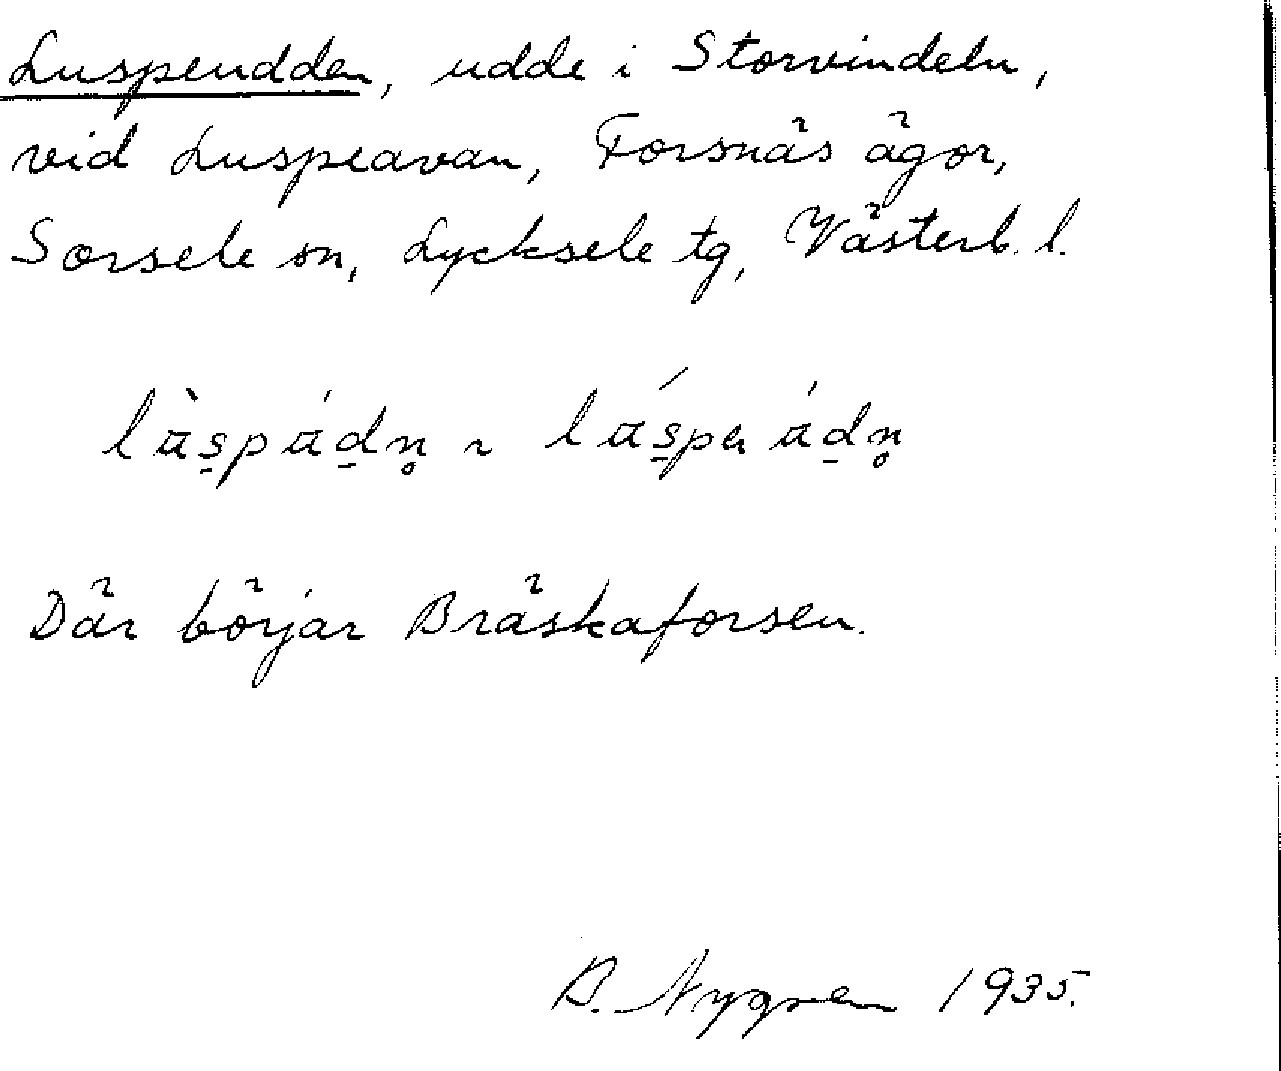 Luspeudden, udde i Storvindeln,
vid Luspeavan, Forsnäs ägor,
Sorsele sn, Lycksele tg, Västerb. l.
Där börjar Bräskaforsen.
B. Nygren 1935.